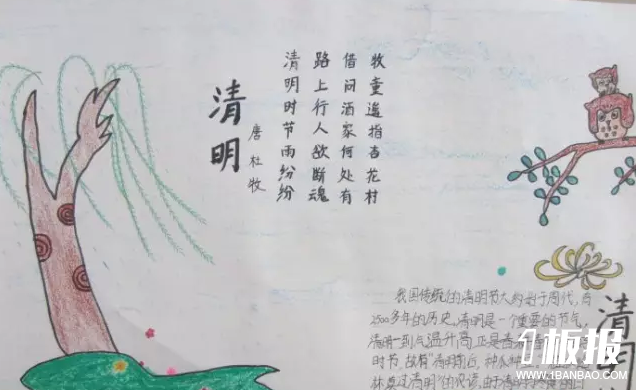 清明
唐 杜牧
清明时节雨纷纷
路上行人欲断魂
借问酒家何处有
牧童遥指杏花村
我国传统的清明节大约始于周代，有
2500多年的历史。清明是一个重要的节气，
清明一到，气温升高，正是
时节，故有"清明前后，种瓜种
林莫过清明"的农谚
清
1板报
WWW.1BANBAO.COM